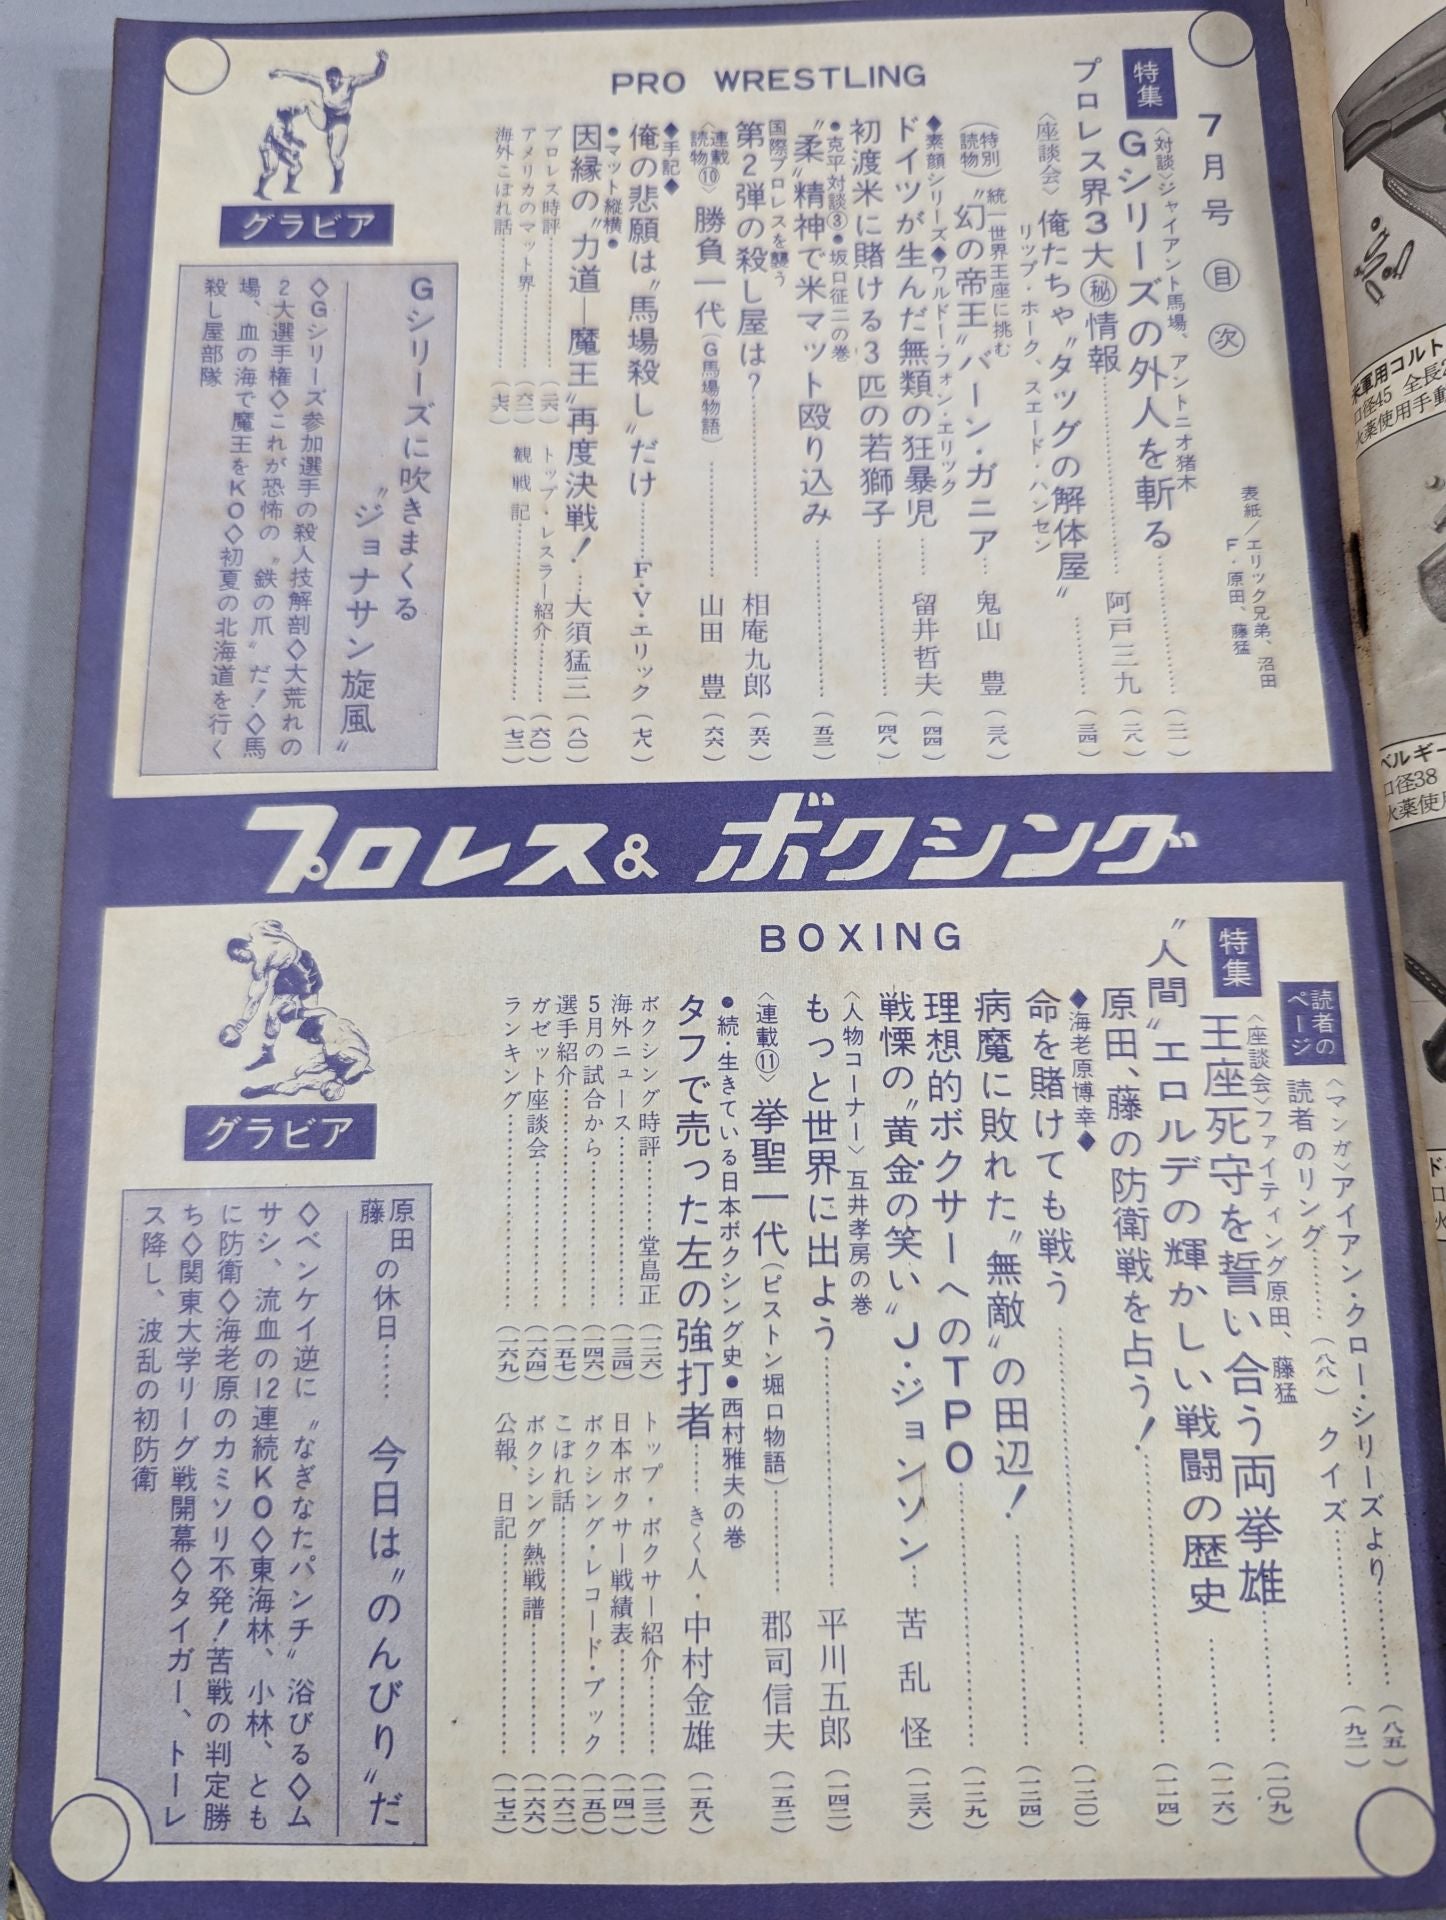 7月号 目次
表紙/エリック兄弟、沼田
F・原田、藤猛
PRO WRESTLING
特集
〈対談〉ジャイアント馬場、アントニオ猪木
Gシリーズの外人を斬る……(二一)
プロレス界3大㊙情報……阿戸三九(二八)
〈座談会〉俺たちゃ〝タッグの解体屋〟……(三四)
リップ・ホーク、スエード・ハンセン
(特別読物)統一世界王座に挑む
〝幻の帝王〟バーン・ガニア…鬼山 豊(三八)
◆素顔シリーズ◆ワルドー・フォン・エリック
ドイツが生んだ無類の狂暴児…留井哲夫(四四)
初渡米に賭ける3匹の若獅子……(四八)
●克平対談③●坂口征二の巻
〝柔〟精神で米マット殴り込み……(五三)
国際プロレスを襲う
第2弾の殺し屋は?……相庵九郎(五六)
〈連載読物⑩〉勝負一代(G馬場物語)……山田 豊(六六)
◆手記◆
俺の悲願は〝馬場殺し〟だけ……F・V・エリック(七八)
●マット縦横●
因縁の〝力道—魔王〟再度決戦!…大須猛三(八〇)
プロレス時評……(二六)
アメリカのマット界……(六二)
海外こぼれ話……(七六)
トップ・レスラー紹介……(六〇)
観戦記……(七二)
グラビア
Gシリーズに吹きまくる
〝ジョナサン旋風〟
◇Gシリーズ参加選手の殺人技解剖◇大荒れの
2大選手権◇これが恐怖の〝鉄の爪〟だ!◇馬
場、血の海で魔王をKO◇初夏の北海道を行く
殺し屋部隊
プロレス& ボクシング
BOXING
読者のページ
〈マンガ〉アイアン・クロー・シリーズより……(八五)
読者のリング……(八八) クイズ……(九二)
特集
〈座談会〉ファイティング原田、藤猛
王座死守を誓い合う両挙雄……(一〇九)
〝人間〟エロルデの輝かしい戦闘の歴史……(一一六)
原田、藤の防衛戦を占う!……(一一四)
◆海老原博幸◆
命を賭けても戦う……(一二〇)
病魔に敗れた〝無敵〟の田辺!……(一二四)
理想的ボクサーへのTPO……(一二九)
戦慄の〝黄金の笑い〟J・ジョンソン…苦乱 怪(一三六)
〈人物コーナー〉互井孝房の巻
もっと世界に出よう……平川五郎(一四二)
〈連載⑪〉挙聖一代(ピストン堀口物語)……郡司信夫(一五二)
●続・生きている日本ボクシング史●西村雅夫の巻
タフで売った左の強打者……きく人・中村金雄(一五八)
ボクシング時評……堂島正(一二六)
海外ニュース……(一三四)
5月の試合から……(一四六)
選手紹介……(一五七)
ガゼット座談会……(一六四)
ランキング……(一六九)
トップ・ボクサー紹介……(一三二)
日本ボクサー戦績表……(一四一)
ボクシング・レコード・ブック(一五〇)
こぼれ話……(一六二)
ボクシング熱戦譜……(一六六)
公報、日記……
グラビア
原田
藤 の休日…… 今日は〝のんびり〟だ
◇ベンケイ逆に〝なぎなたパンチ〟浴びる◇ム
サシ、流血の12連続KO◇東海林、小林、とも
に防衛◇海老原のカミソリ不発!苦戦の判定勝
ち◇関東大学リーグ戦開幕◇タイガー、トーレ
ス降し、波乱の初防衛
米軍用コルト
口径45 全長2
火薬使用手動
ベルギー
口径38
火薬使用